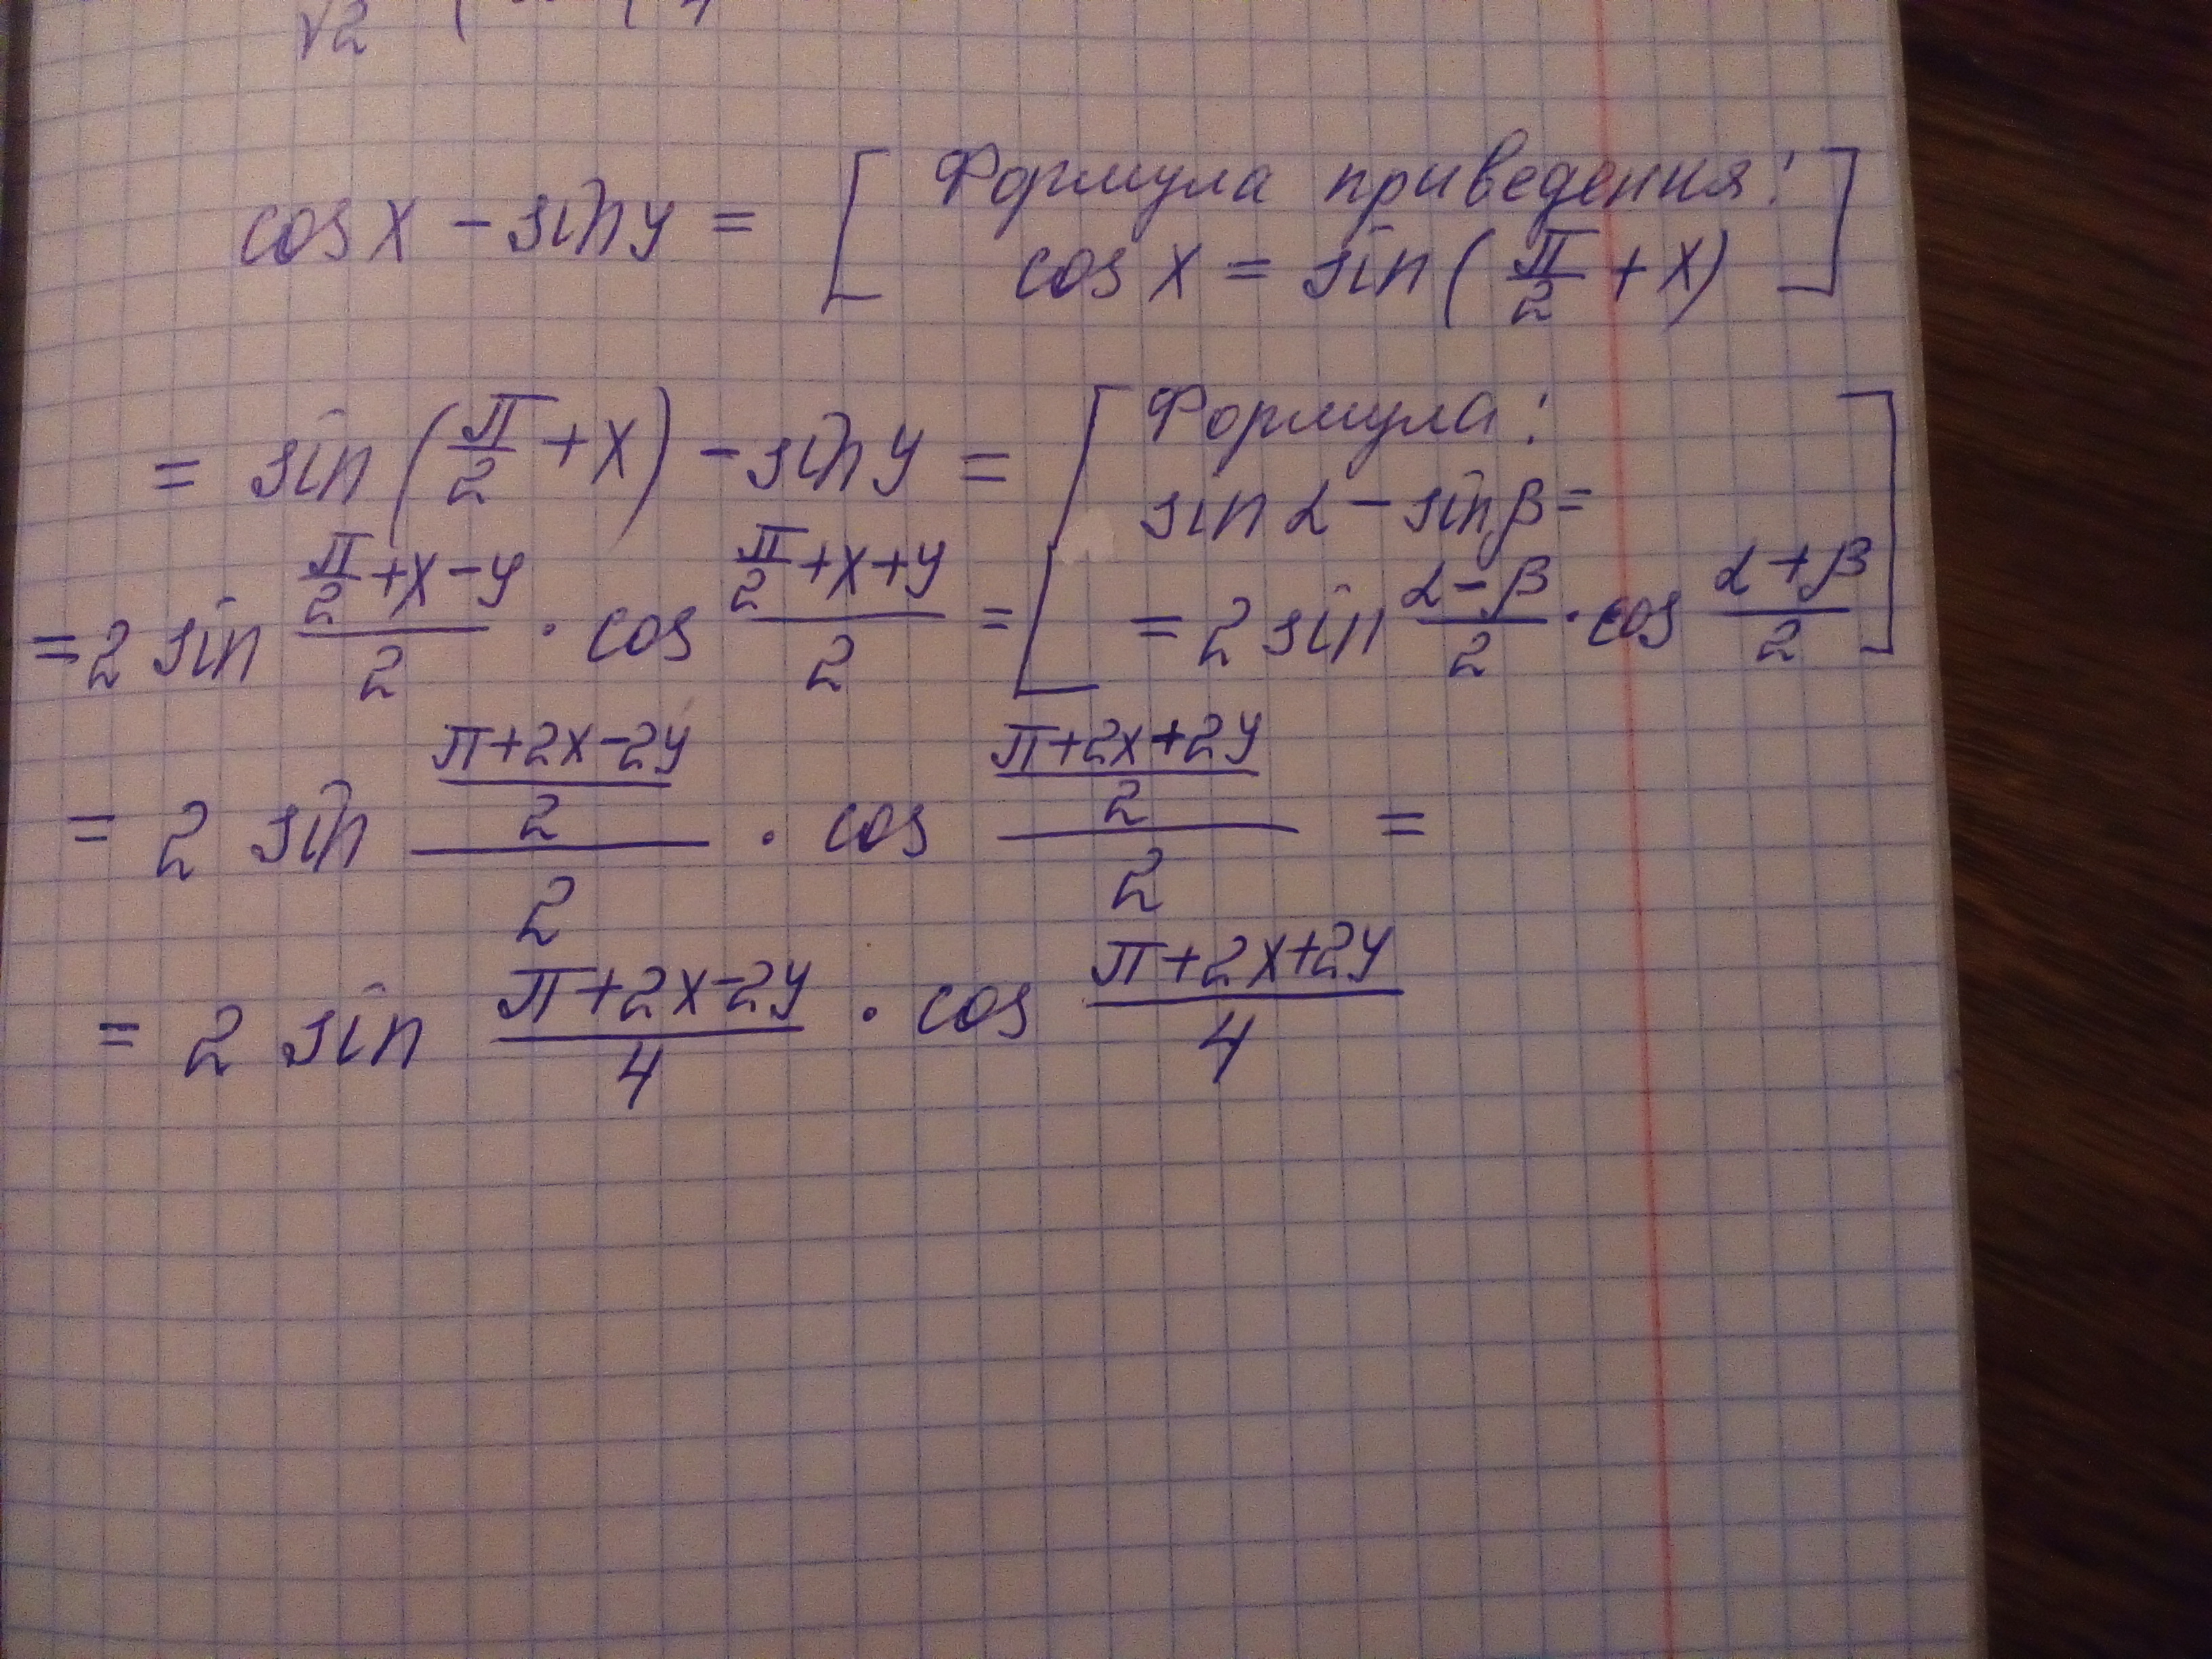 √2
cos x - sin y = [ Формула приведения:
cos x = sin(π/2 + x) ]
= sin(π/2 + x) - sin y = [ Формула:
sin α - sin β =
= 2 sin (α-β)/2 · cos (α+β)/2 ]
= 2 sin (π/2 + x - y)/2 · cos (π/2 + x + y)/2 =
= 2 sin ((π+2x-2y)/2)/2 · cos ((π+2x+2y)/2)/2 =
= 2 sin (π+2x-2y)/4 · cos (π+2x+2y)/4